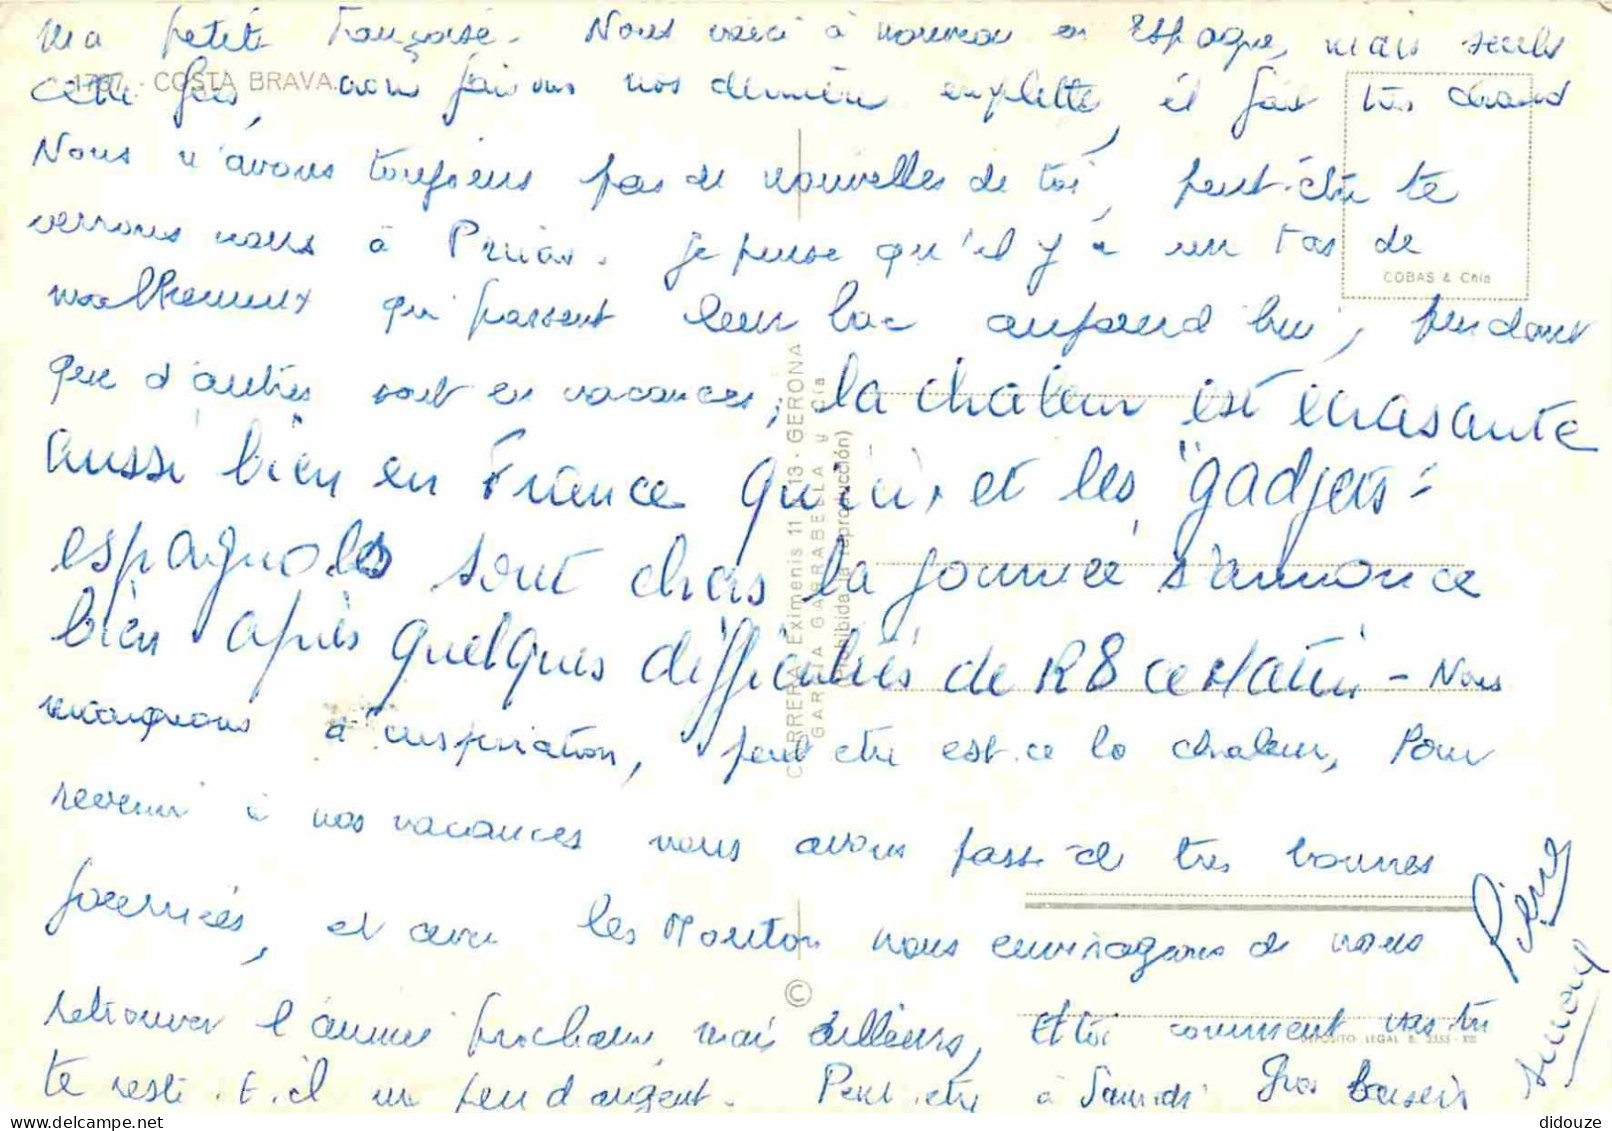 Ma petite Françoise. Nous voici à nouveau en Espagne, mais seuls
1797. - COSTA BRAVA.
cette fois, nous faisons nos dernière emplette, il fait très chaud
Nous n'avons toujours pas de nouvelles de toi, peut-être te
verrons nous à . Je pense qu'il y a un tas de
COBAS & Cnia
malheureux qui passent leur bac aujourd'hui, pendant
que d'autres sont en vacances, la chaleur est écrasante
aussi bien en France qu'ici, et les "gadjets"
espagnoles sont chers la journée s'annonce
bien après quelques difficultés de R8 ce Matin - Nous
manquons d'inspiration, peut être est-ce la chaleur, Pour
revenir à nos vacances nous avons passé de très bonnes
journées, et avec les Mouton nous envisageons de nous
retrouver l'année prochaine, mais ailleurs, Et toi comment vas tu
te reste-t-il un peu d'argent. Peut être à Samedi Gros baisers
Pierre
CARRERA Eximenis 11 y 13 - GERONA
GARCIA GARRABELLA y Cía
(Prohibida la reproducción)
©
DEPOSITO LEGAL B. 3353 - XII
didouze